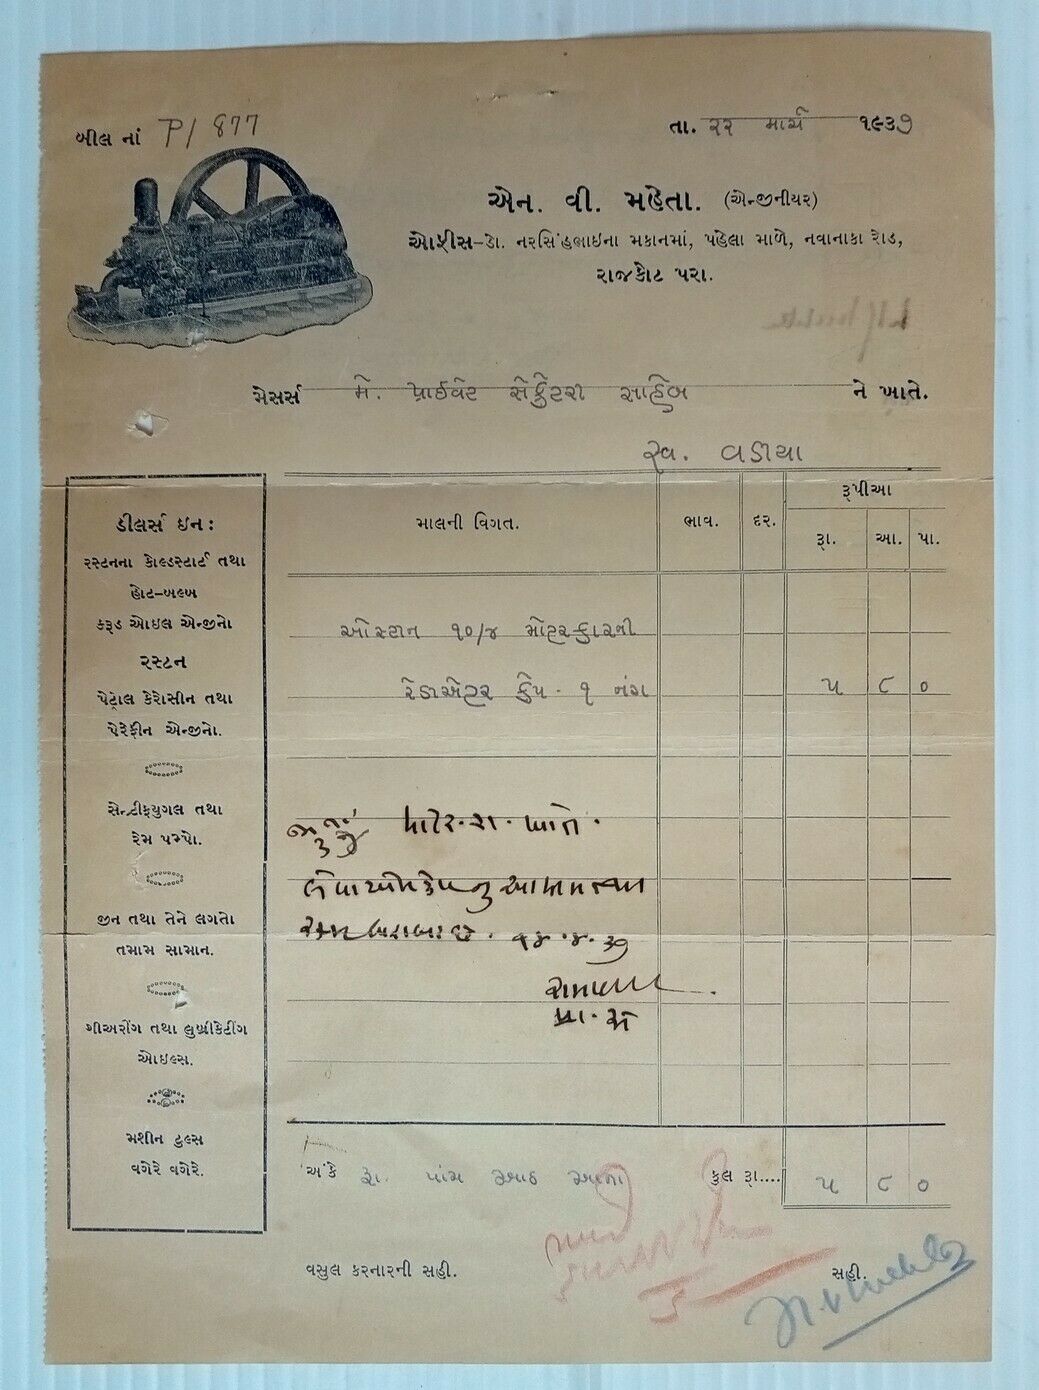 બીલ નાં P/ 877
તા. ૨૨ માર્ચ ૧૯૩૭
એન. વી. મહેતા. (એન્જીનીયર)
ઓફીસ-ડો. નરસિંહભાઇના મકાનમાં, પહેલા માળે, નવાનાકા રોડ,
રાજકોટ પરા.
મેસર્સ મે. પ્રાઈવેટ સેક્રેટરી સાહેબ ને ખાતે.
સ્વ. વડીયા
ડીલર્સ ઇન:
રસ્ટનના કોલ્ડસ્ટાર્ટ તથા
હોટ-બલ્બ
ક્રૂડ ઓઇલ એન્જીનો
રસ્ટન
પેટ્રોલ કેરોસીન તથા
પેરેફીન એન્જીનો.
સેન્ટ્રીફ્યુગલ તથા
રેમ પમ્પો.
જીન તથા તેને લગતો
તમામ સામાન.
ગીઅરીંગ તથા લુબ્રીકેટીંગ
ઓઇલ્સ.
મશીન ટુલ્સ
વગેરે વગેરે.
માલની વિગત. ભાવ. દર. રૂપીઆ
રૂા. આ. પા.
ઓસ્ટીન ૧૦/૪ મોટરકારની
રેડીએટર કેપ. ૧ નંગ ૫ ૮ ૦
મોટર. ખાતે.
૧૪.૪.૩૭
અંકે રૂા. પાંચ આઠ આના કુલ રૂા.... ૫ ૮ ૦
વસુલ કરનારની સહી.
સહી.